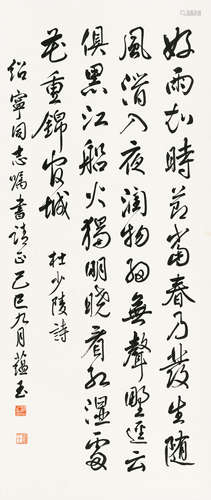 好雨知時節當春乃發生隨
風潛入夜潤物細無聲野徑雲
俱黑江船火獨明曉看紅濕處
花重錦官城 杜少陵詩
紹寧同志囑書請正己巳九月蘊玉